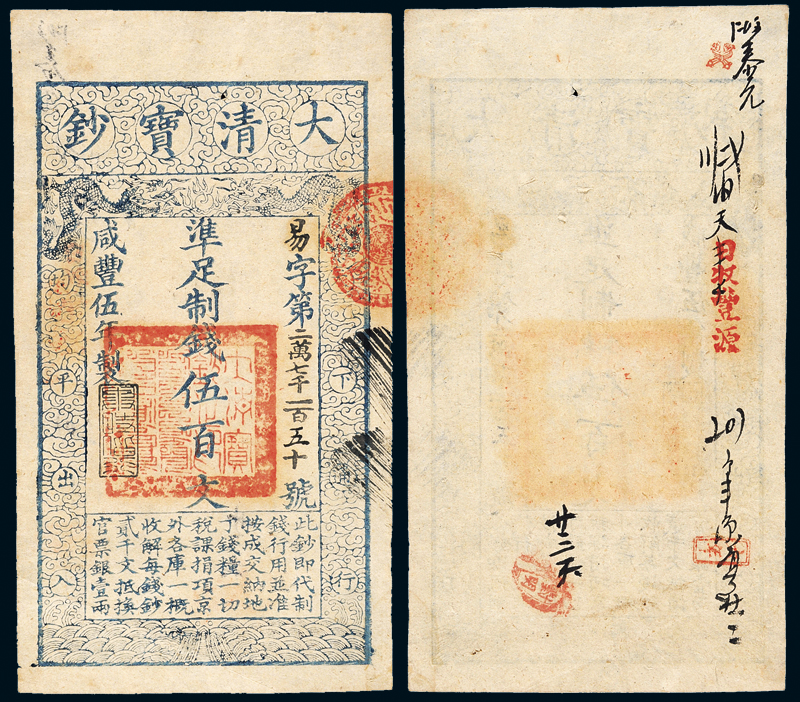 大清寶鈔
易字第二萬七千一百五十號
準足制錢伍百文
咸豐伍年製
下行
均平出入
此鈔即代制
錢行用並准
按成交納地
丁錢糧一切
稅課捐項京
外各庫一概
收解每錢鈔
貳千文抵換
官票銀壹兩
泰元
豐源
廿二